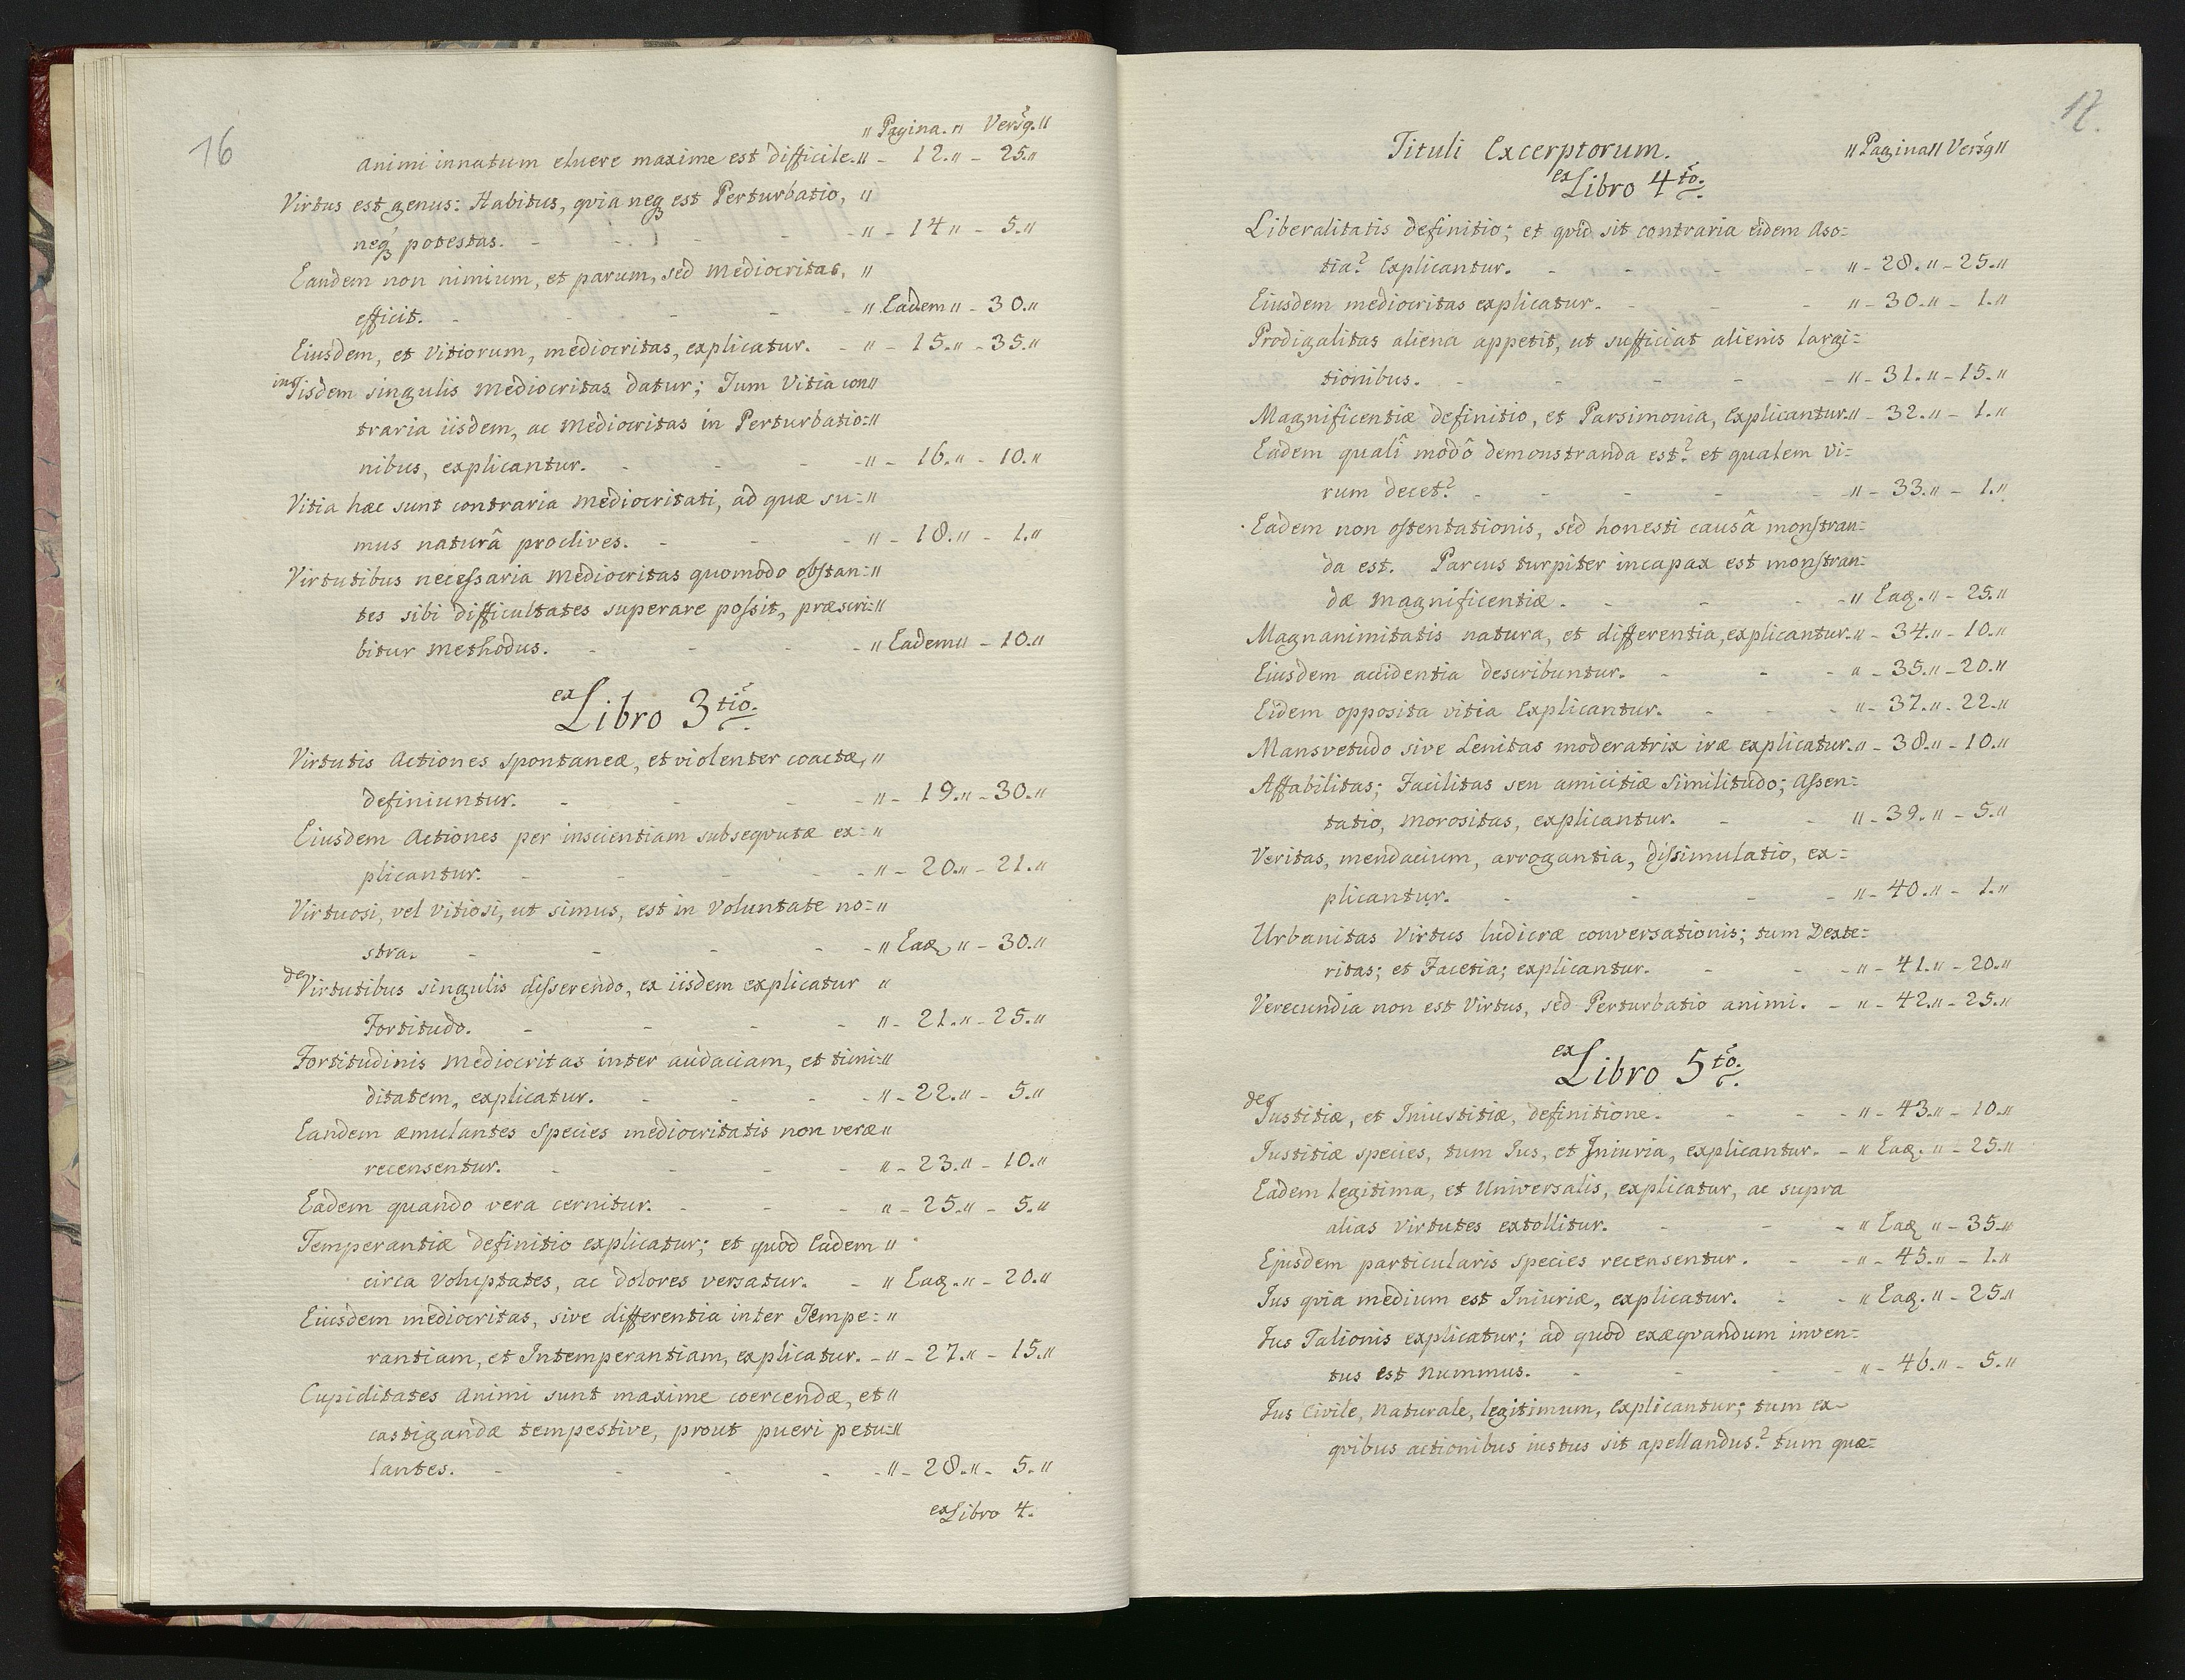 16
" Pagina. " Versq. "
Animi innatum eluere maxime est difficile. " - 12. " - 25. "
Virtus est genus: Habitus, qvia neq3 est Perturbatio, "
neq3 potestas. - - - - " - 14 " - 5. "
Eandem non nimium, et parum, sed mediocritas, "
efficit. - - - - - " Eadem " - 30. "
Eiusdem, et Vitiorum, mediocritas, explicatur. - " - 15. " - 35. "
in Iisdem singulis mediocritas datur; Tum Vitia con "
traria iisdem, ac mediocritas in Perturbatio: "
nibus, explicantur. - - - - " - 16. " - 10. "
Vitia hæc sunt contraria mediocritati, ad quæ su: "
mus naturâ proclives. - - - " - 18. " - 1. "
Virtutibus neceſsaria mediocritas quomodo obſtan: "
tes sibi difficultates superare poſsit, præscri: "
bitur methodus. - - - - " Eadem " - 10. "
ex Libro 3tio.
Virtutis Actiones spontaneæ, et violenter coactæ, "
definiuntur. - - - - " - 19. " - 30. "
Eiusdem Actiones per inscientiam subseqvutæ ex: "
plicantur. - - - - - " - 20. " - 21. "
Virtuosi, vel vitiosi, ut simus, est in Voluntate no: "
stra. - - - - - " Eaq3 " - 30. "
de Virtutibus singulis diſserendo, ex iisdem explicatur "
Fortitudo. - - - - " - 21. " - 25. "
Fortitudinis mediocritas inter audaciam, et timi: "
ditatem, explicatur. - - - - " - 22. " - 5. "
Eandem æmulantes species mediocritatis non veræ "
recensentur. - - - - " - 23. " - 10. "
Eadem quando vera cernitur. - - - " - 25. " - 5. "
Temperantiæ definitio explicatur; et quod Eadem "
circa Voluptates, ac dolores versatur. - " Eaq3. " - 20. "
Eiusdem mediocritas, sive differentia inter Tempe: "
rantiam, et Intemperantiam, explicatur. - " - 27. " - 15. "
Cupiditates Animi sunt maxime coercendæ, et "
castigandæ tempestive, prout pueri petu: "
lantes. - - - - - " - 28. " - 5. "
ex Libro 4.
17.
Tituli Excerptorum. " Pagina " Versq "
ex Libro 4to.
Liberalitatis definitio; et qvid sit contraria eidem Aso:
tia? Explicantur. - - - - " - 28. " - 25. "
Eiusdem mediocritas explicatur. - - - " - 30. " - 1. "
Prodigalitas aliena appetit, ut sufficiat alienis largi:
tionibus. - - - - - " - 31. " - 15. "
Magnificentiæ definitio, et Parsimonia, Explicantur. " - 32. " - 1. "
Eadem qualî modô demonstranda est? et qualem Vi:
rum decet? - - - - - " - 33. " - 1. "
Eadem non oſtentationis, sed honesti causâ monſtran:
da est. Parcus turpiter incapax est monſtran:
dæ Magnificentiæ. - - - - " Eaq3. " - 25. "
Magnanimitatis natura, et differentia, explicantur. " - 34. " - 10. "
Eiusdem accidentia describuntur. - - - " - 35. " - 20. "
Eidem opposita vitia Explicantur. - - - " - 37. " - 22. "
Mansvetudo sive Lenitas moderatrix iræ explicatur. " - 38. " - 10. "
Affabilitas; Facilitas seu amicitiæ similitudo; Aſsen:
tatio, morositas, explicantur. - - " - 39. " - 5. "
Veritas, mendacium, arrogantia, diſsimulatio, ex:
plicantur. - - - - " - 40. " - 1. "
Urbanitas Virtus ludicræ conversationis; tum Dexte:
ritas; et Facetia; explicantur. - - - " - 41. " - 20. "
Verecundia non est Virtus, sed Perturbatio animi. - " - 42. " - 25. "
ex Libro 5to.
de Iustitiæ, et Iniustitiæ, definitione. - - - " - 43. " - 10. "
Iustitiæ species, tum Ius, et Iniuria, explicantur. - " Eaq3. " - 25. "
Eadem legitima, et Universalis, explicatur, ac supra
alias virtutes extollitur. - - - " Eaq3 " - 35. "
Ejusdem particularis species recensentur. - - " - 45. " - 1. "
Ius qvia medium est Iniuriæ, explicatur. - - " Eaq3. " - 25. "
Ius Talionis explicatur; ad quod exæqvandum inven:
tus est nummus. - - - " - 46. " - 5. "
Ius Civile, naturale, legitimum, explicantur; tum ex
qvibus actionibus iustus sit apellandus? tum quæ: